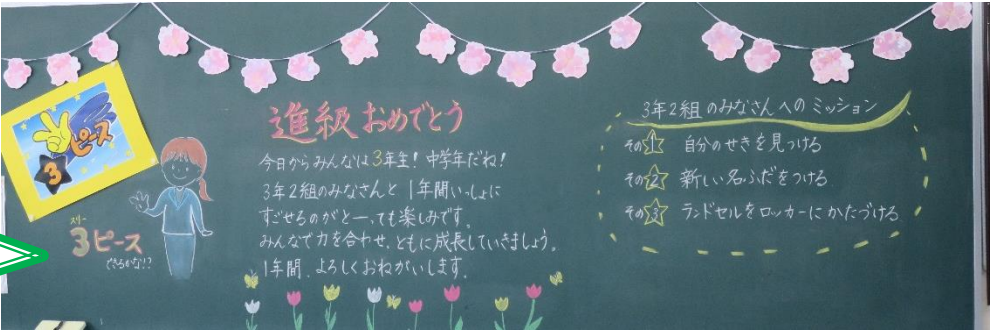 3
ピース
スリー
3ピース
できるかな!?
進級おめでとう
今日からみんなは3年生!中学年だね!
3年2組のみなさんと1年間いっしょに
すごせるのがと一っても楽しみです。
みんなで力を合わせ、ともに成長していきましょう。
1年間、よろしくおねがいします。
3年2組のみなさんへのミッション
その1 自分のせきを見つける
その2 新しい名ふだをつける
その3 ランドセルをロッカーにかたづける